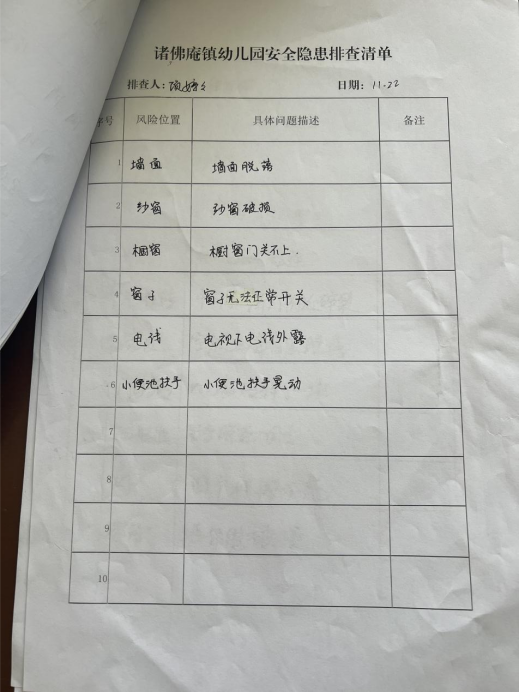 诸佛庵镇幼儿园安全隐患排查清单
排查人: 日期: 11.22
序号 风险位置 具体问题描述 备注
1 墙面 墙面脱落
2 纱窗 纱窗破损
3 橱窗 橱窗门关不上.
4 窗子 窗子无法正常开关
5 电线 电视下电线外露
6 小便池扶手 小便池扶手晃动
7
8
9
10